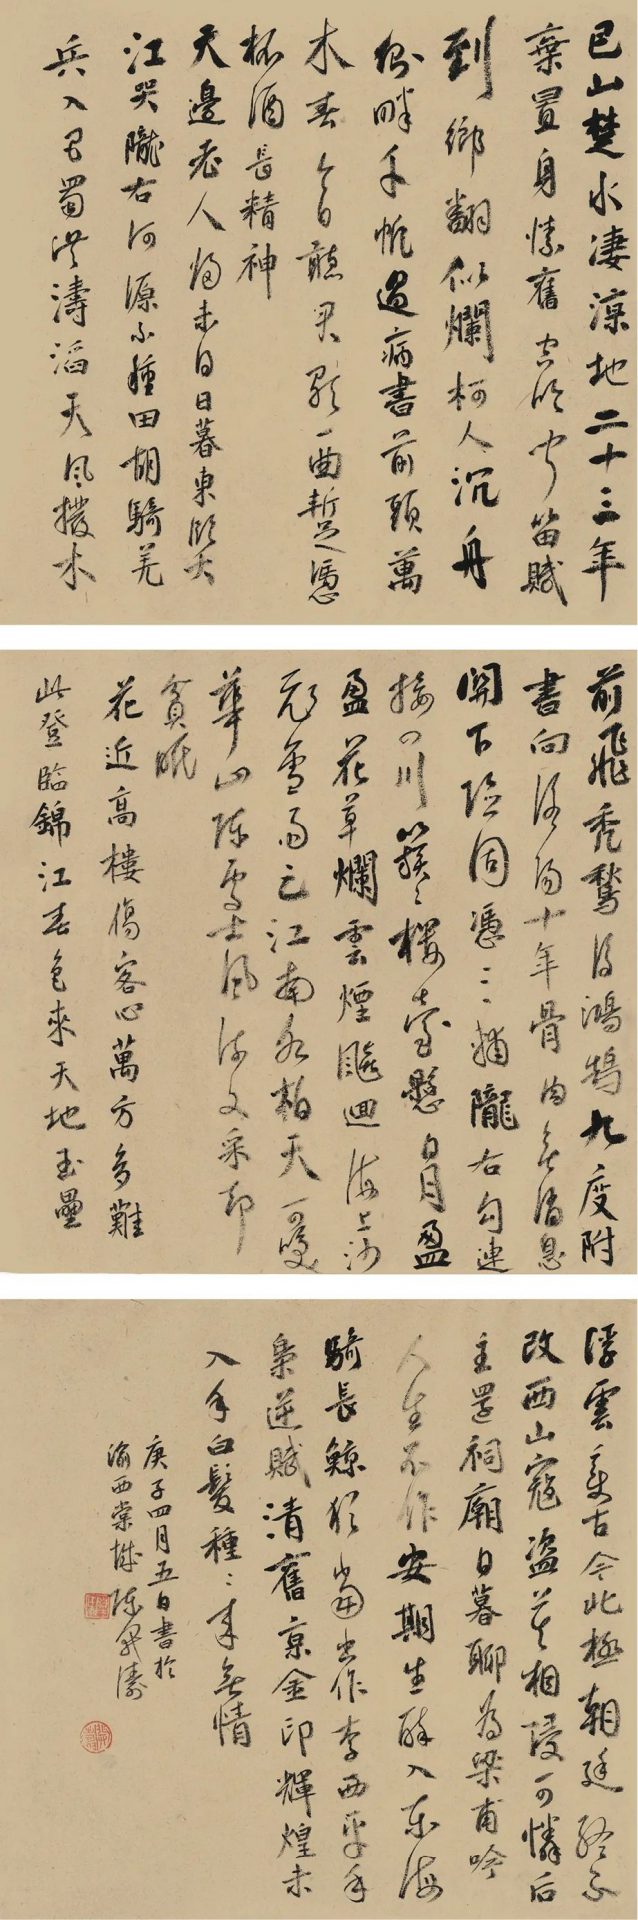 巴山楚水淒涼地二十三年
棄置身懷舊空吟聞笛賦
到鄉翻似爛柯人沉舟
側畔千帆過病書前頭萬
木春今日聽君歌一曲暫憑
杯酒長精神
天邊老人歸未得日暮東臨大
江哭隴右河源不種田胡騎羌
兵入巴蜀洪濤滔天風拔木
前飛禿鶖後鴻鵠九度附
書向洛陽十年骨肉無消息
關下隘固憑三輔隴右勾連
接四川簇簇樓臺懸日月盈
盈花草爛雲煙迴海上沙
雪雨江南水拍天可嘆
華山陳處士風流文采卻
貪眠
花近高樓傷客心萬方多難
此登臨錦江春色來天地玉壘
浮雲變古今北極朝廷終不
改西山寇盜莫相侵可憐后
主還祠廟日暮聊為梁甫吟
人生不作安期生醉入東海
騎長鯨猶當出作李西平手
梟逆賊清舊京金印輝煌未
入手白髮種種來無情
庚子四月五日書於
渝西棠城陳濤